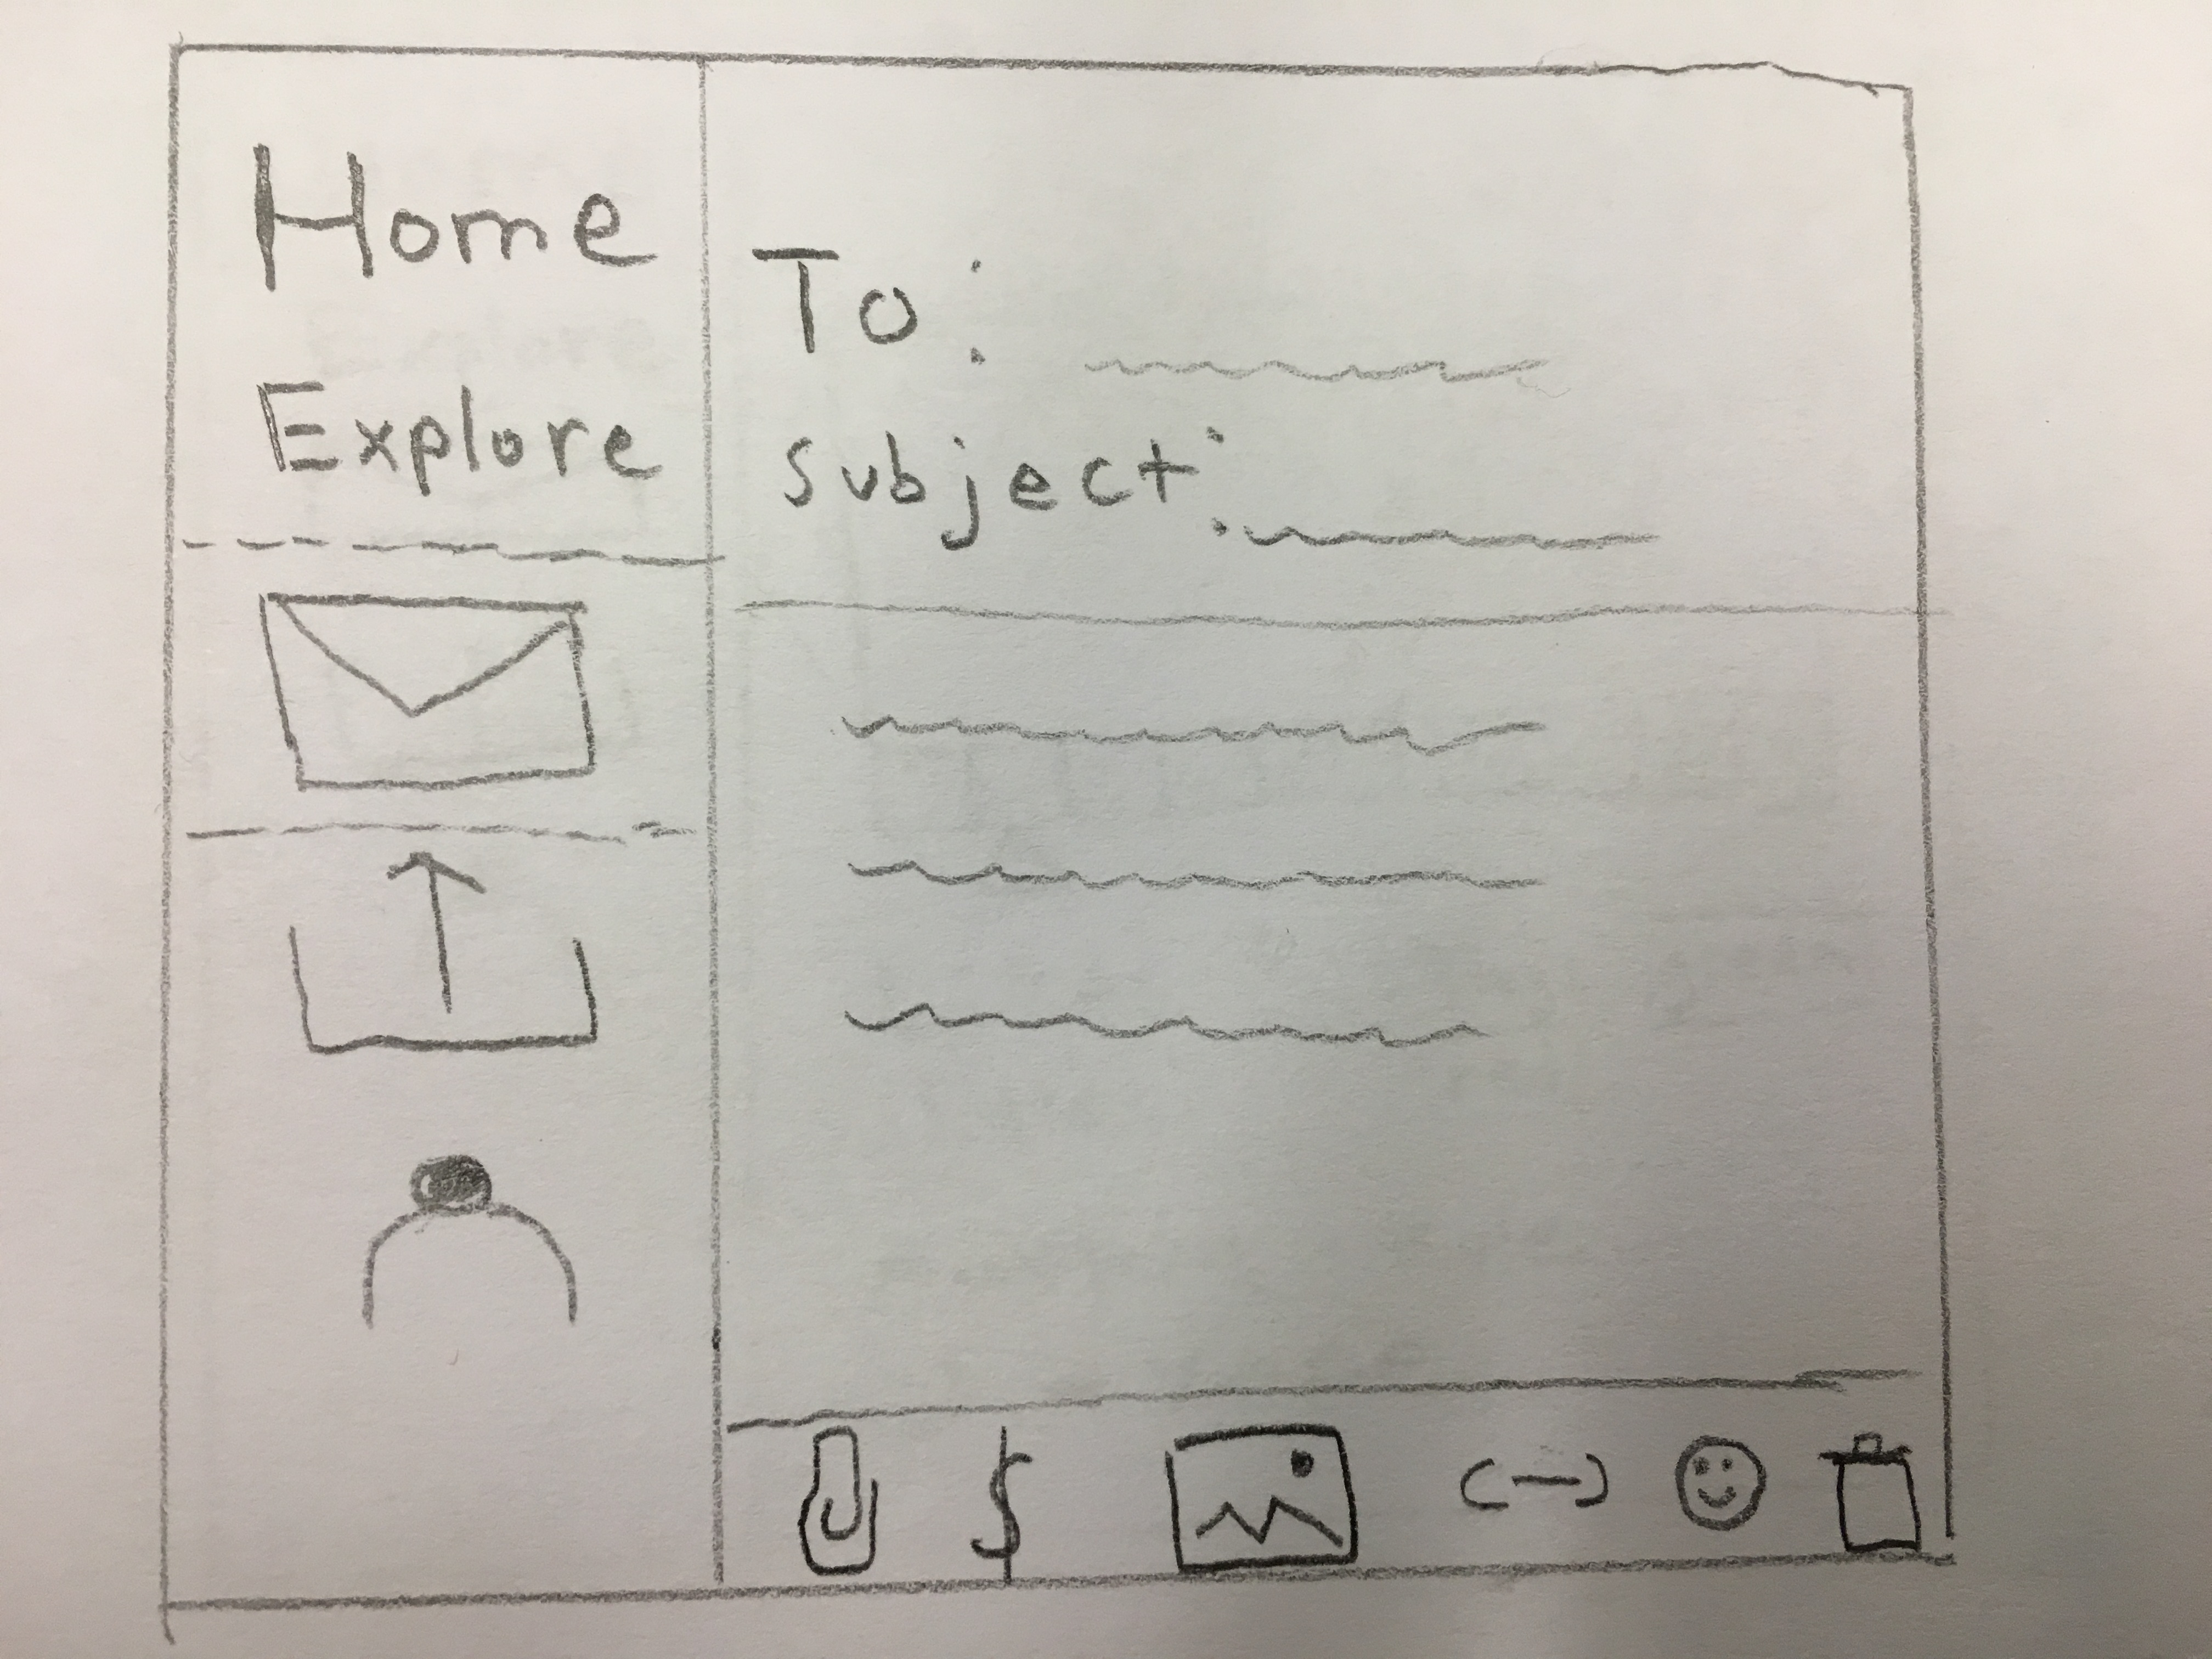 Home
Explore
To:
Subject:
$